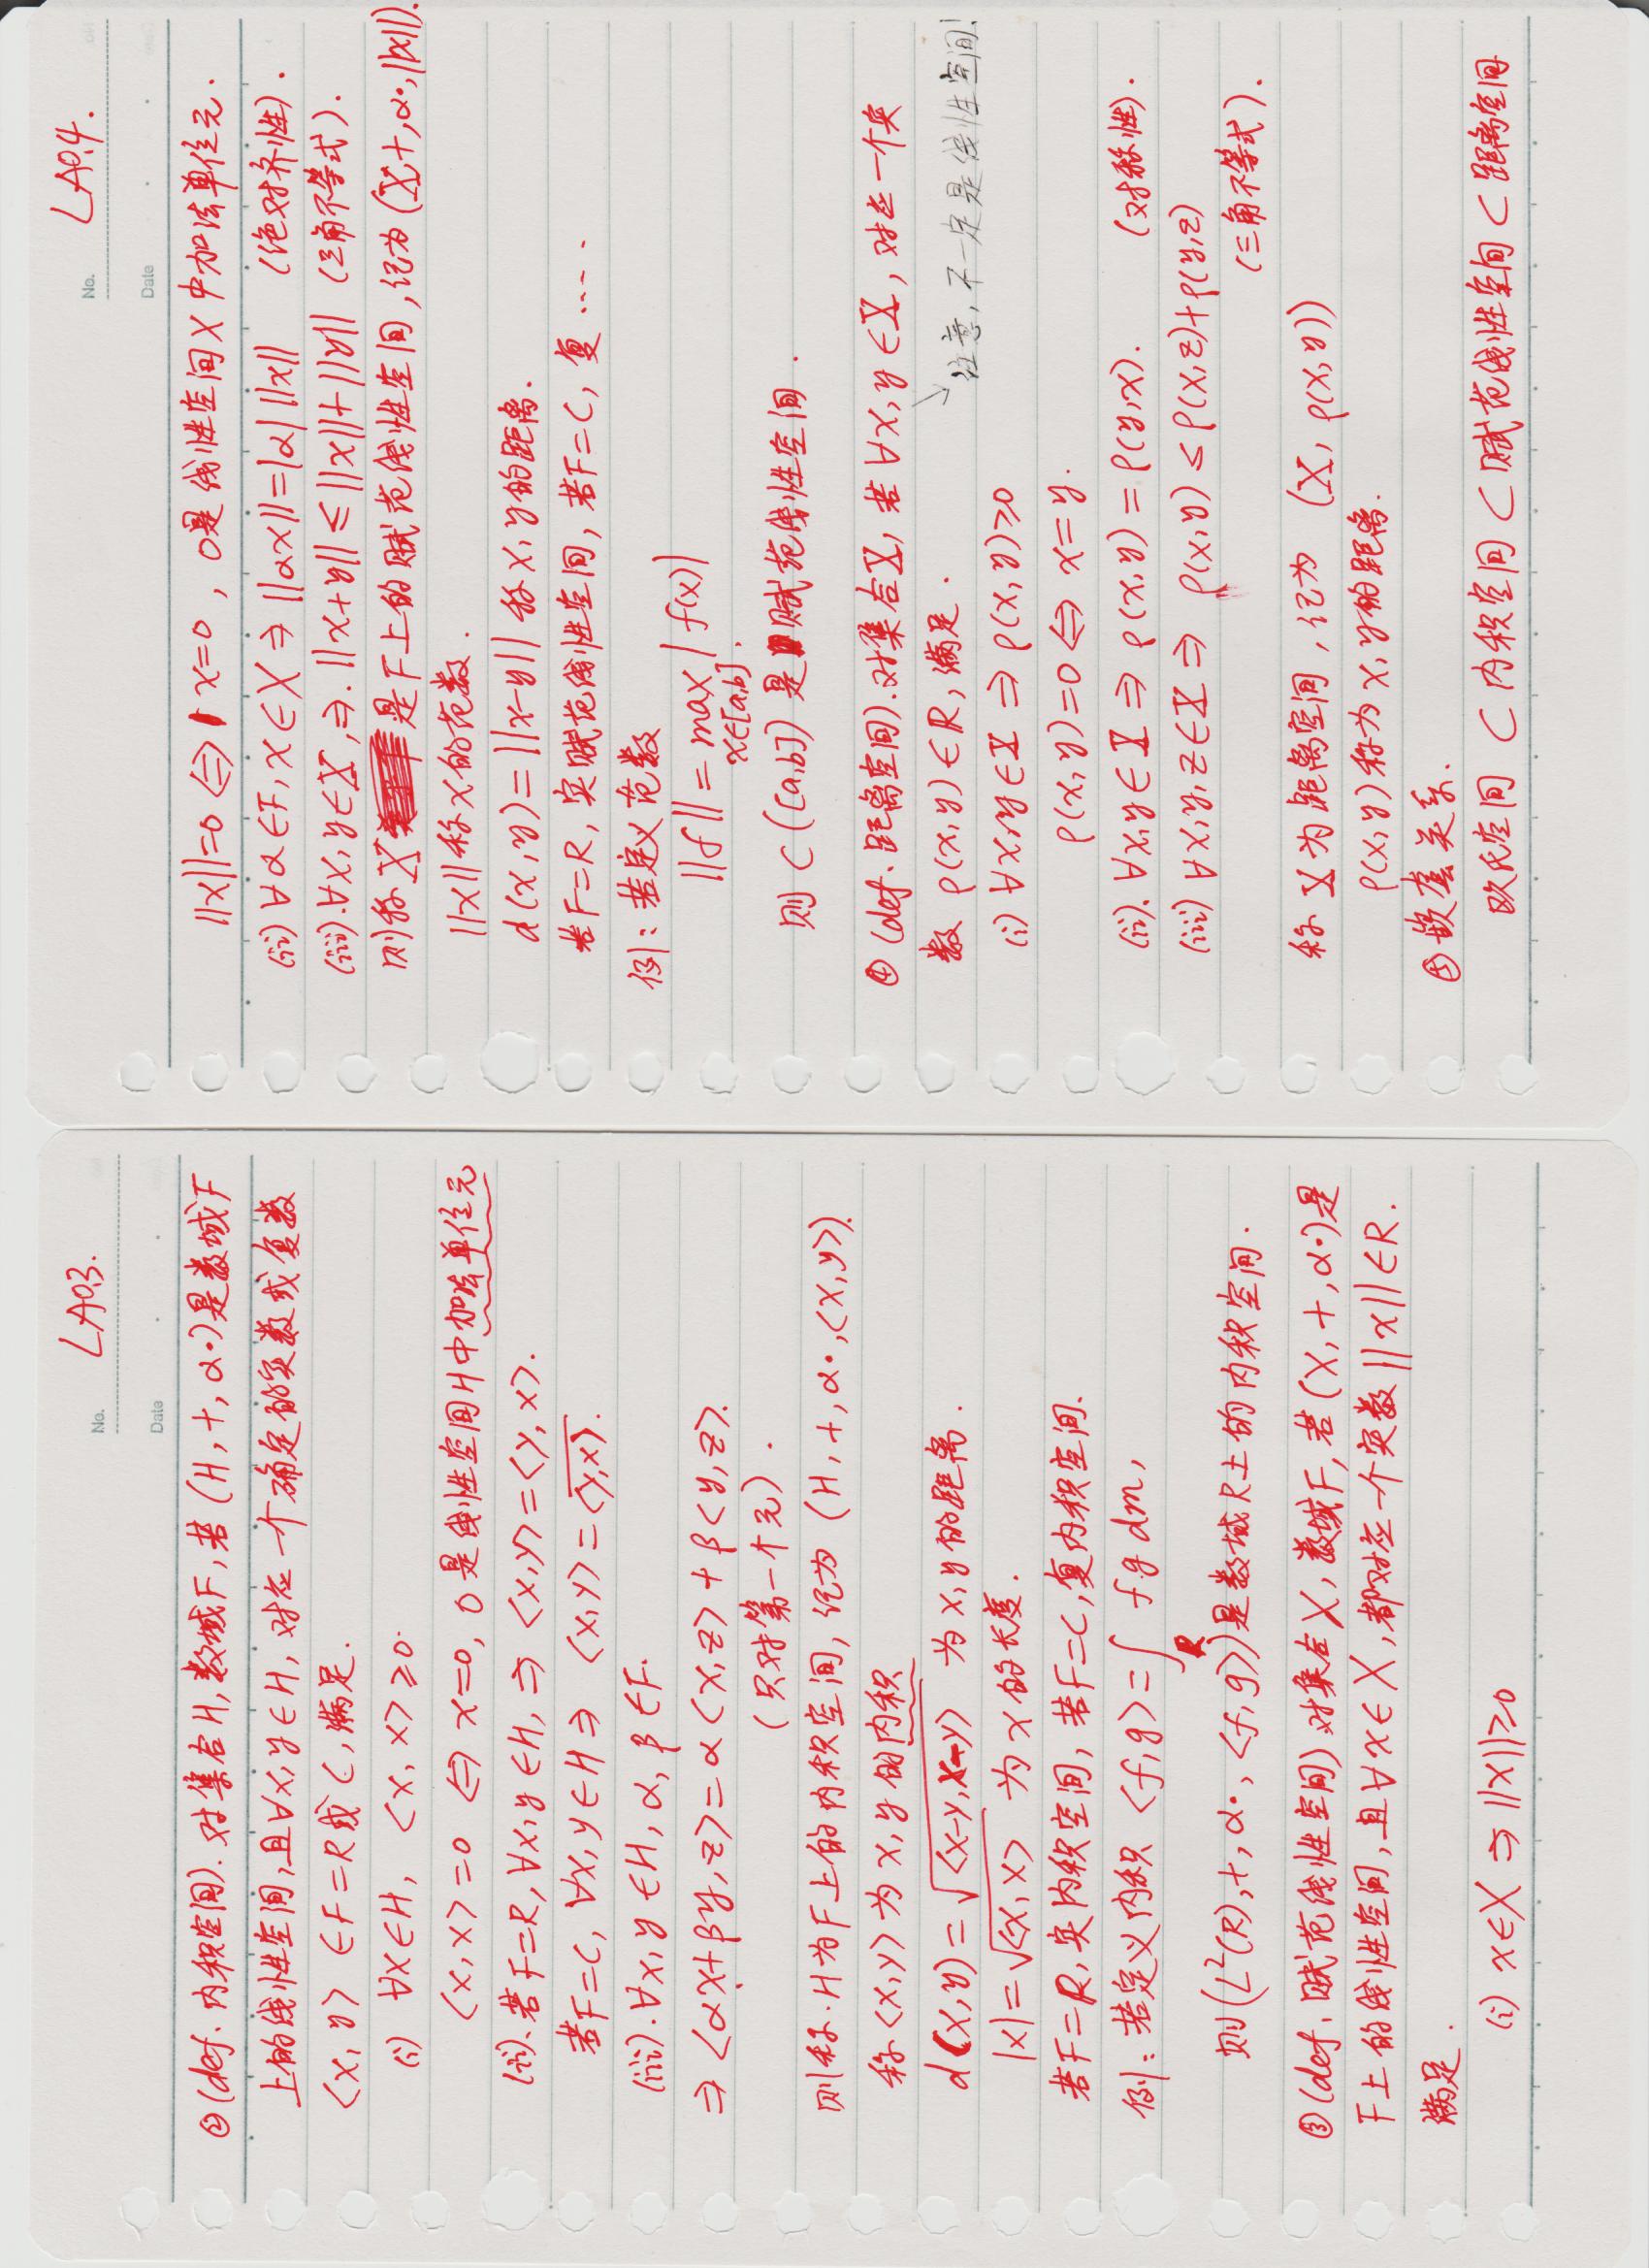 No. LA0.3.
Date
②(def. 内积空间). 对集合H, 数域F, 若 (H, +, α·)是数域F
上的线性空间,且∀x, y∈H, 对应一个确定的实数或复数
<x, y> ∈F=R或C,满足.
(i) ∀x∈H, <x, x>≥0.
<x, x>=0 ⇔ x=0, 0是线性空间H中加法单位元
(ii). 若F=R, ∀x, y∈H, ⇒ <x,y>=<y, x>.
若F=C, ∀x, y∈H ⇒ <x,y> = \overline{<y,x>}.
(iii). ∀x, y∈H, α, β∈F.
⇒ <αx+βy, z>=α<x,z> + β<y, z>.
(只对第一个元).
则称.H为F上的内积空间, 记为 (H, +, α·,<x,y>).
称<x,y>为x, y的内积
d(x,y)=√<x-y,x-y> 为x,y的距离.
|x|=√<x, x> 为x的长度.
若F=R,实内积空间, 若F=C,复内积空间.
例: 若定义内积 <f,g>=∫_R f·g dm,
则(L²(R),+, α·, <f, g>)是数域R上的内积空间.
③(def. 赋范线性空间) 对集合X, 数域F, 若(X, +, α·)是
F上的线性空间, 且∀x∈X,都对应一个实数||x||∈R.
满足.
(i) x∈X ⇒ ||x||≥0
No. LA0.4.
Date
||x||=0 ⇔ x=0, 0是线性空间X中加法单位元.
(ii) ∀α∈F, x∈X ⇒ ||αx||=|α| ||x|| (绝对齐性).
(iii).∀x, y∈X,⇒. ||x+y||≤||x||+||y|| (三角不等式).
则称X 是F上的赋范线性空间, 记为(X+, α·, ||x||).
||x||称x的范数.
d(x, y)=||x-y|| 称x, y的距离.
若F=R, 实赋范线性空间, 若F=C, 复……
例: 若定义范数
||f|| = max |f(x)|
x∈[a,b].
则 C([a,b])是赋范线性空间.
④ (def. 距离空间).对集合X, 若∀x, y∈X, 对应一个实
数 ρ(x,y)∈R, 满足.
↘注意, 不一定是线性空间!
(i) ∀x,y∈X ⇒ ρ(x,y)≥0
ρ(x, y)=0 ⇔ x=y.
(ii). ∀x,y∈X ⇒ ρ(x,y) = ρ(y,x). (对称性).
(iii) ∀x,y,z∈X ⇒ ρ(x,y)≤ρ(x,z)+ρ(y,z)
(三角不等式).
称 X为距离空间, 记为 (X, ρ(x,y))
ρ(x,y)称为x, y的距离.
⑤嵌套关系.
欧氏空间 ⊂ 内积空间 ⊂ 赋范线性空间 ⊂ 距离空间